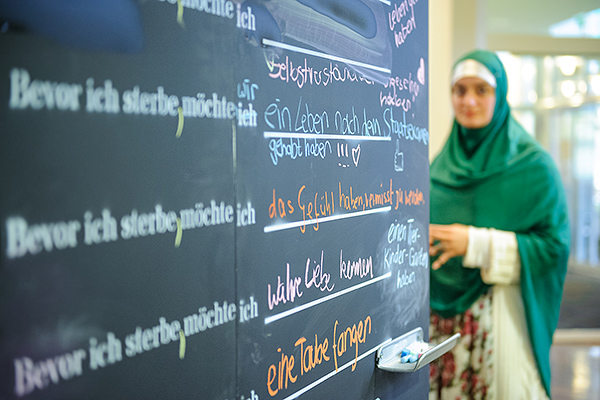 Bevor ich sterbe, möchte ich
leben
haben
Selbstverständ
Bevor ich sterbe, möchte ich
wir
ein Leben nach dem Staatsexamen
gehabt haben !!! ♡
das Gefühl haben, vermisst zu werden
Bevor ich sterbe, möchte ich
einen Tier-
Kinder-Garten
haben
wahre Liebe kennen
Bevor ich sterbe, möchte ich
eine Taube fangen